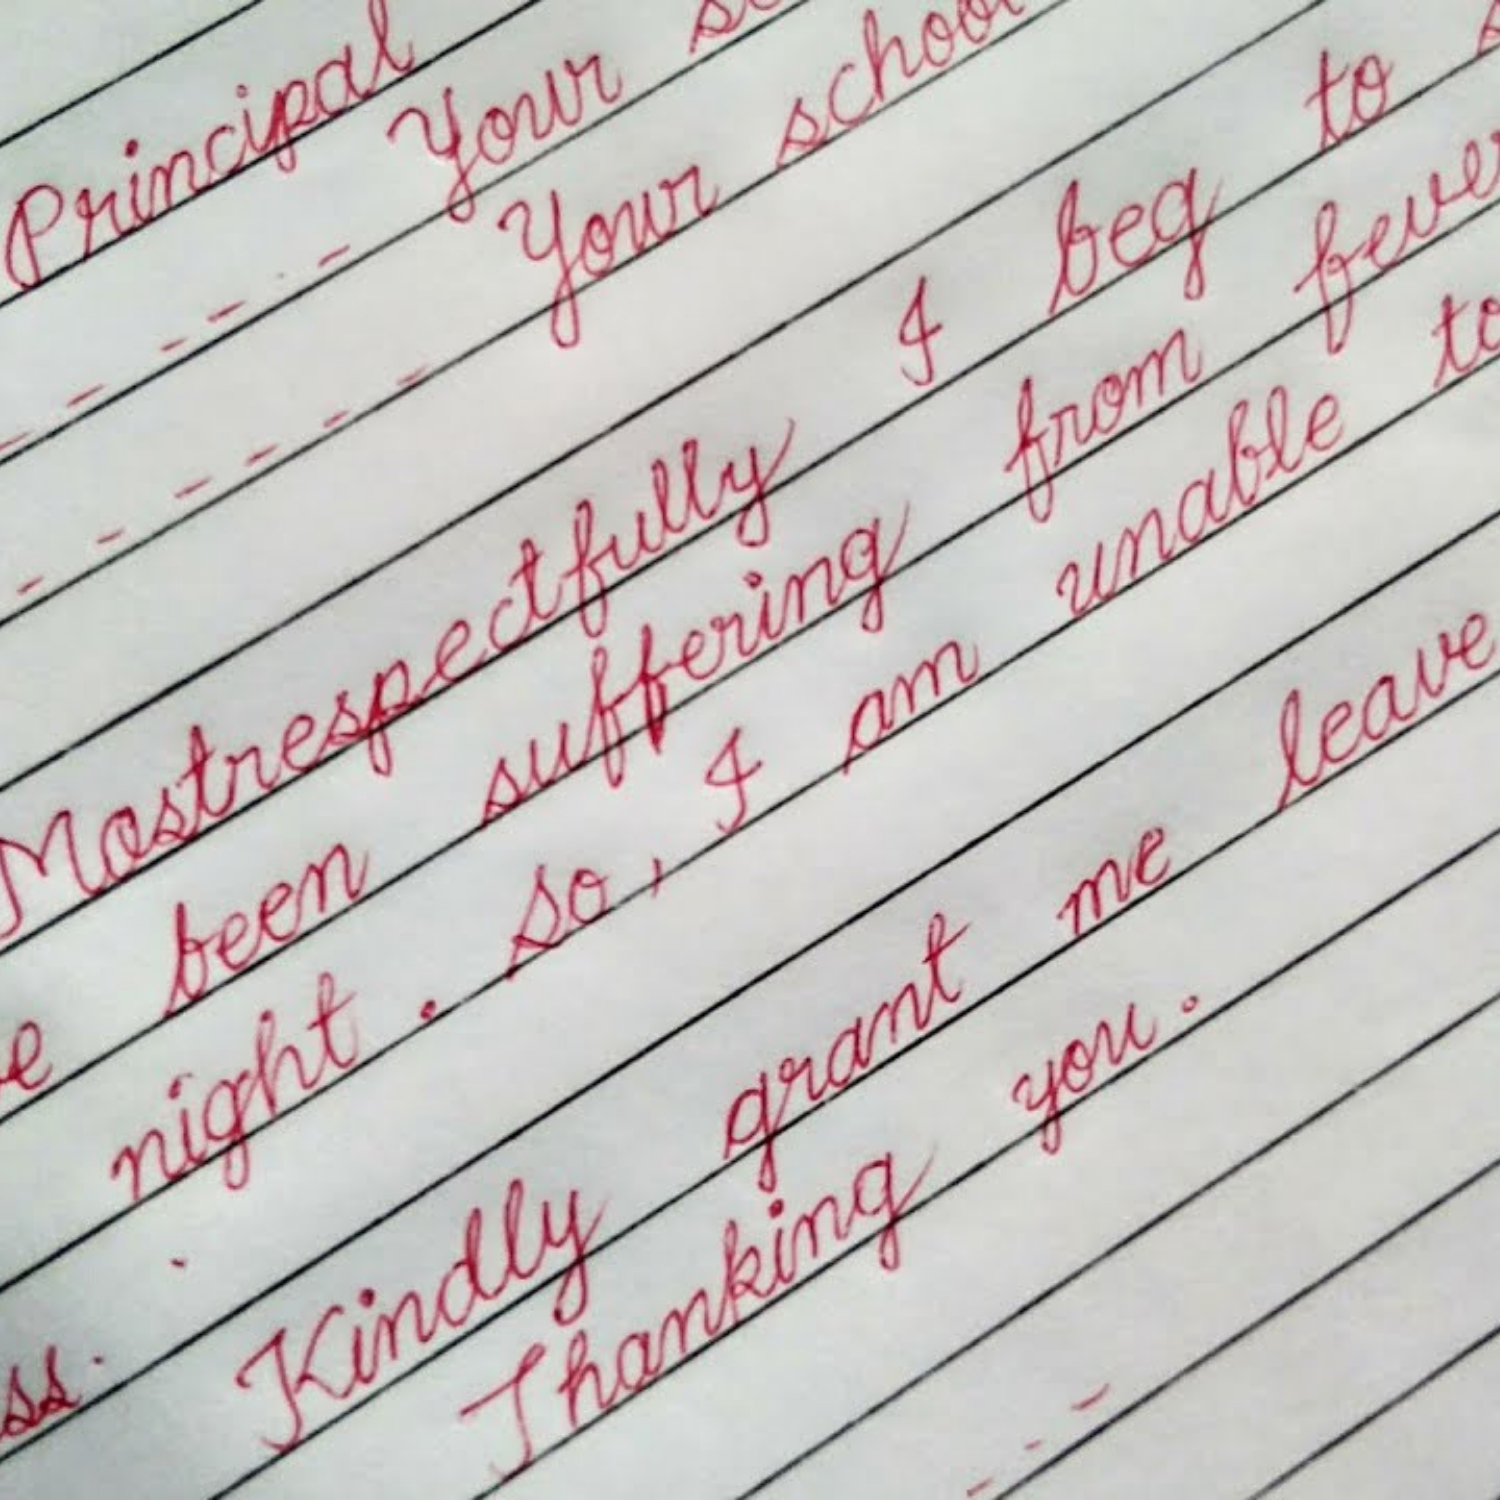 Principal
- - - - - Your
- - - - - - Your school
Mostrespectfully I beg to
been suffering from fever
night. So, I am unable to
ss.
Kindly grant me leave
Thanking you.
- - -